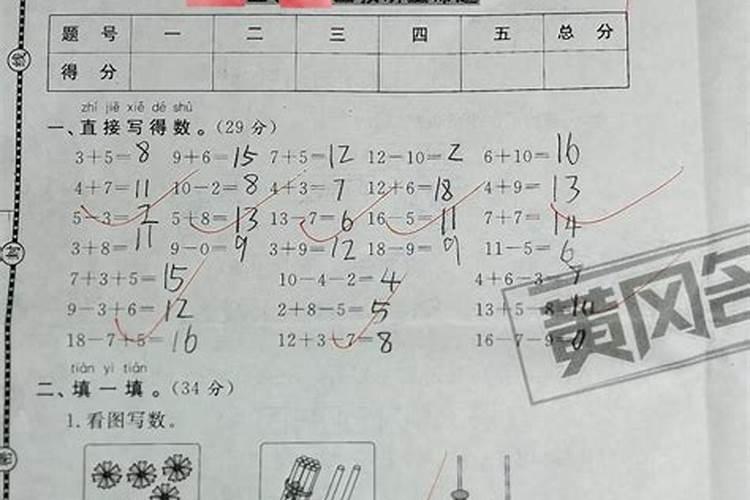 题 号 一 二 三 四 五 总 分
得 分
zhí jiē xiě dé shù
一、直接写得数。(29分)
3+5=8 9+6=15 7+5=12 12-10=2 6+10=16
4+7=11 10-2=8 4+3=7 12+6=18 4+9=13
5-3=2 5+8=13 13-7=6 16-5=11 7+7=14
3+8=11 9-0=9 3+9=12 18-9=9 11-5=6
7+3+5=15 10-4-2=4 4+6-3=7
9-3+6=12 2+8-5=5 13+5-8=10
18-7+5=16 12+3-7=8 16-7-9=0
tián yi tián
二、填一填。(34分)
1.看图写数。
黄冈名
线
封
密